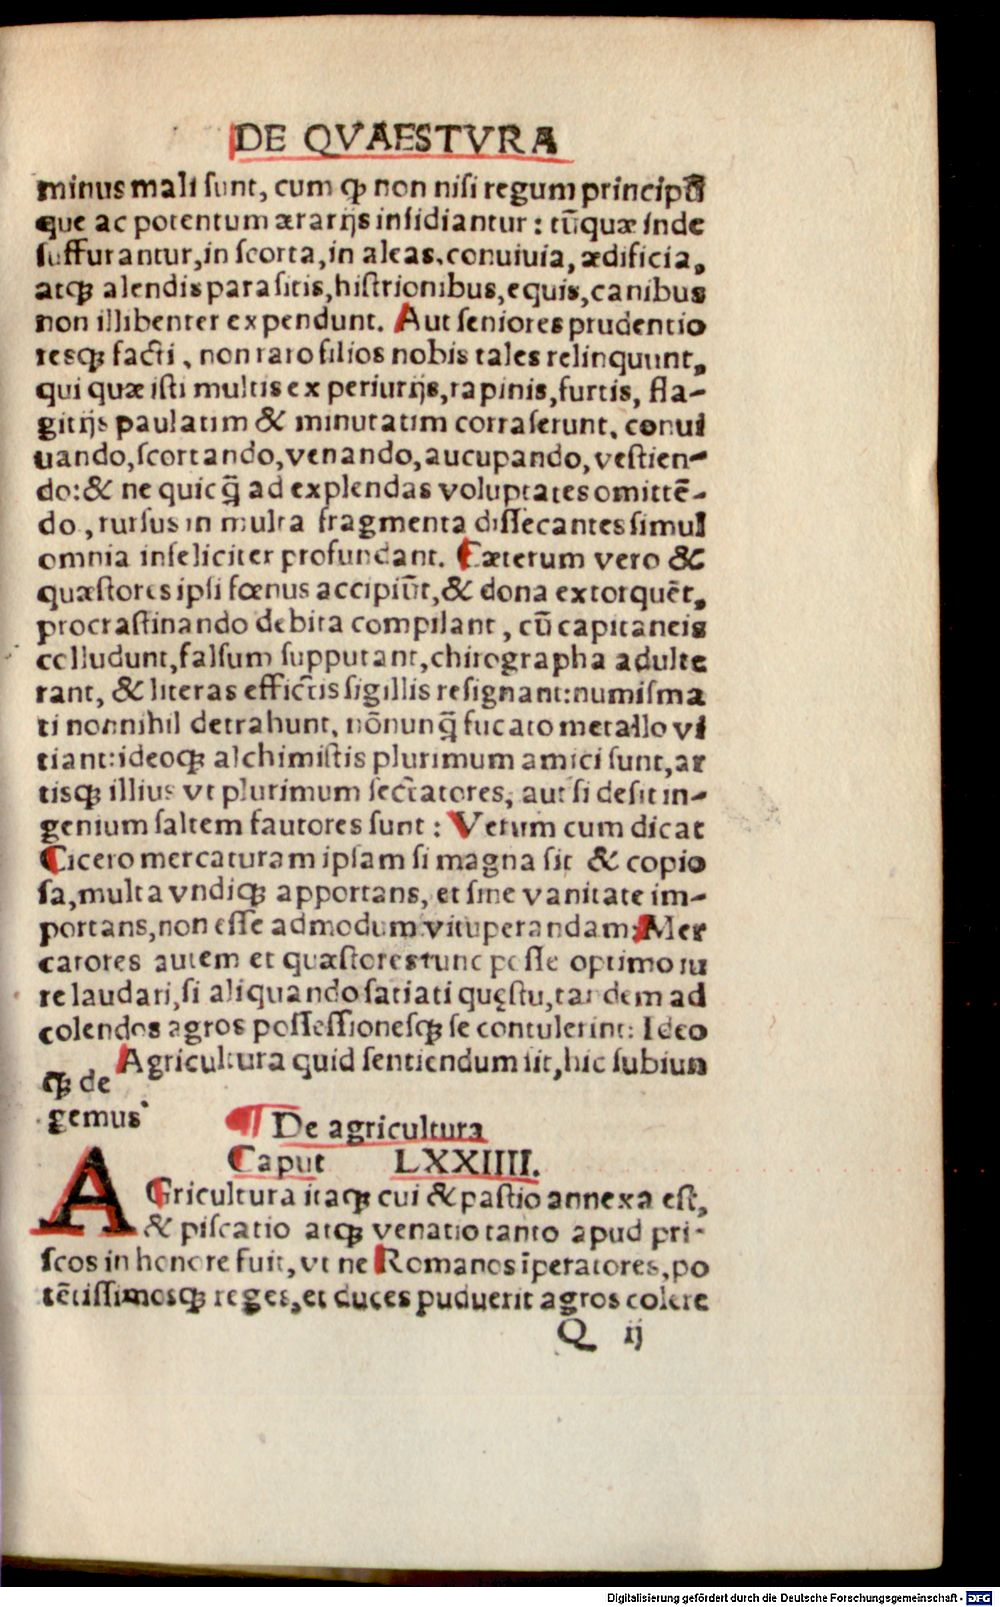 DE QVAESTVRA
minus mali sunt, cum ꝙ non nisi regum principū
que ac potentum ærarijs insidiantur: tūquæ inde
suffurantur, in scorta, in aleas, conuiuia, ædificia,
atqꝫ alendis parasitis, histrionibus, equis, canibus
non illibenter expendunt. Aut seniores prudentio
resqꝫ facti, non raro filios nobis tales relinquunt,
qui quæ isti multis ex periurijs, rapinis, furtis, fla-
gitijs paulatim & minutatim corraserunt, conui
uando, scortando, venando, aucupando, vestien-
do: & ne quicq̄ ad explendas voluptates omittē-
do, rursus in multa fragmenta dissecantes simul
omnia infeliciter profundant. Cæterum vero &
quæstores ipsi fœnus accipiūt, & dona extorquēt,
procrastinando debita compilant, cū capitaneis
colludunt, falsum supputant, chirographa adulte
rant, & literas effictis sigillis resignant: numisma
ti nonnihil detrahunt, nōnunq̄ fucato metallo vi
tiant: ideoqꝫ alchimistis plurimum amici sunt, ar
tisqꝫ illius vt plurimum sectatores, aut si desit in-
genium saltem fautores sunt: Verum cum dicat
Cicero mercaturam ipsam si magna sit & copio
sa, multa vndiqꝫ apportans, et sine vanitate im-
portans, non esse admodum vituperandam: Mer
catores autem et quæstores tunc posse optimo iu
re laudari, si aliquando satiati quęstu, tandem ad
colendos agros possessionesqꝫ se contulerint: Ideo
qꝫ de Agricultura quid sentiendum sit, hic subiun
gemus.
¶ De agricultura
Caput LXXIIII.
AGricultura itaqꝫ cui & pastio annexa est,
& piscatio atqꝫ venatio tanto apud pri-
scos in honore fuit, vt ne Romanos īperatores, po
tētissimosqꝫ reges, et duces puduerit agros colere
Q ij
Digitalisierung gefördert durch die Deutsche Forschungsgemeinschaft - DFG